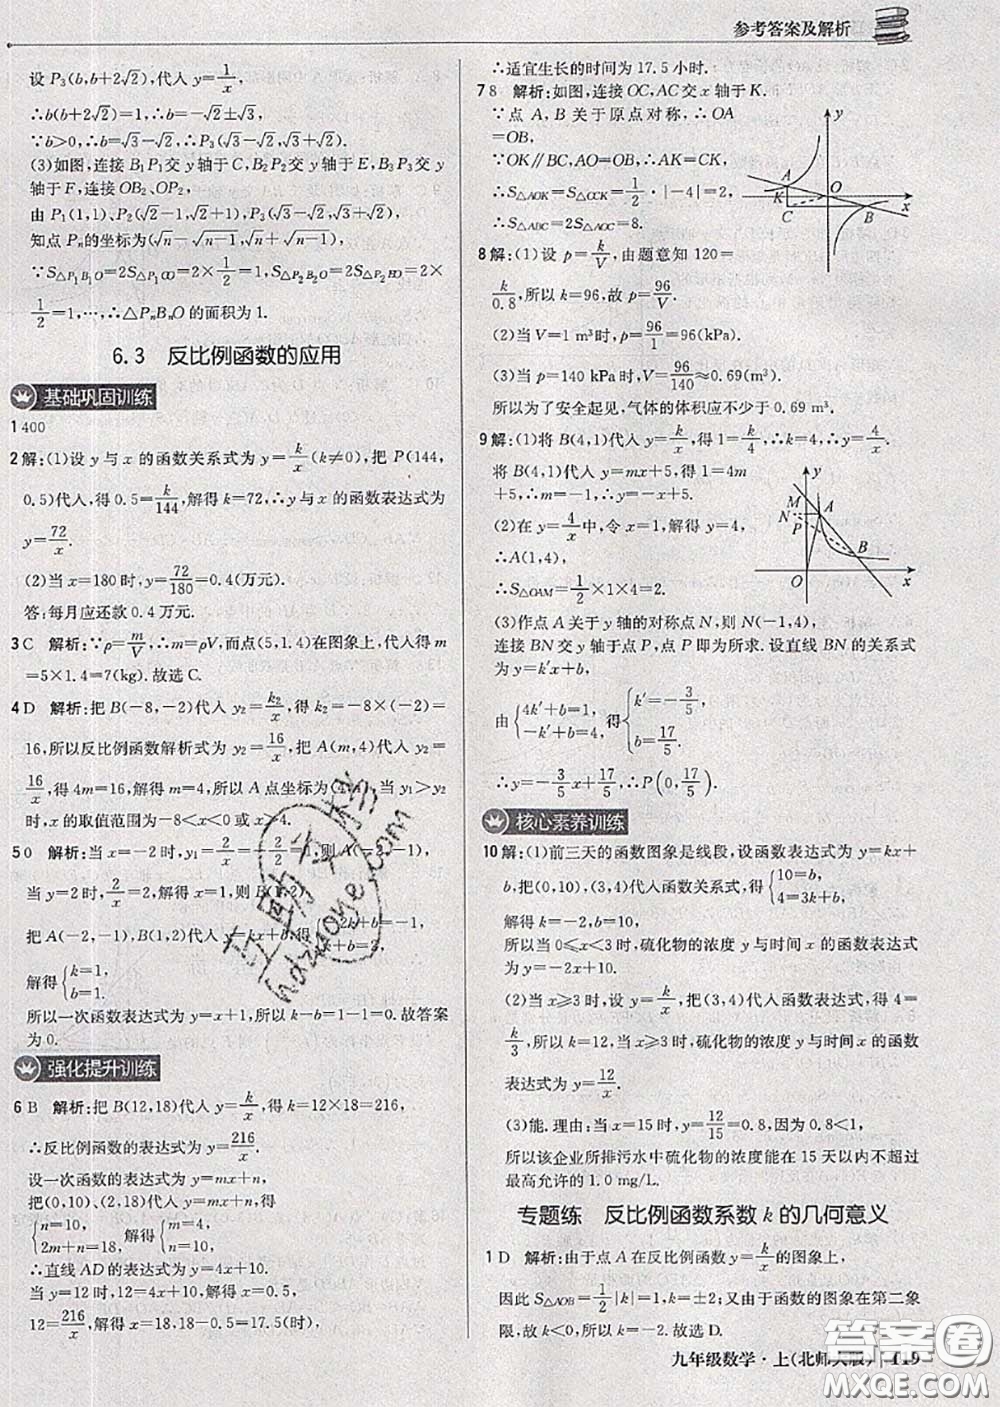 参考答案及解析
设 P₃(b,b+2√2),代入 y=1/x,
∴b(b+2√2)=1,∴b=-√2±√3,
∵b>0,∴b=√3-√2,∴P₃(√3-√2,√3+√2).
(3)如图,连接 B₁P₁交 y 轴于 C,B₂P₂交 y 轴于 E,B₃P₃交 y
轴于 F,连接 OB₂,OP₂,
由 P₁(1,1)、P₂(√2-1,√2+1),P₃(√3-√2,√3+√2),
知点 Pₙ的坐标为(√n-√(n-1),√n+√(n-1)),
∵S△P₁B₁O=2S△P₁CO=2×1/2=1,S△P₂B₂O=2S△P₂EO=2×
1/2=1,…,∴△PₙBₙO 的面积为 1.
6.3 反比例函数的应用
基础巩固训练
1 400
2 解:(1)设 y 与 x 的函数关系式为 y=k/x(k≠0),把 P(144,
0.5)代入,得 0.5=k/144,解得 k=72,∴y 与 x 的函数表达式为
y=72/x.
(2)当 x=180 时,y=72/180=0.4(万元).
答:每月应还款 0.4 万元.
3 C 解析:∵ρ=m/V,∴m=ρV,而点(5,1.4)在图象上,代入得 m
=5×1.4=7(kg).故选 C.
4 D 解析:把 B(-8,-2)代入 y₂=k₂/x,得 k₂=-8×(-2)=
16,所以反比例函数解析式为 y₂=16/x,把 A(m,4)代入 y₂=
16/x,得 4m=16,解得 m=4,所以 A 点坐标为(4,4),当 y₁>y₂
时,x 的取值范围为-8<x<0 或 x>4.
5 0 解析:当 x=-2 时,y₁=2/x=-1,则 A(-2,-1),
当 y=2 时,2/x=2,解得 x=1,则 B(1,2).
把 A(-2,-1),B(1,2)代入 y=kx+b,得{-2k+b=-1, k+b=2,
解得{k=1, b=1.
所以一次函数表达式为 y=x+1,所以 k-b=1-1=0.故答案
为 0.
强化提升训练
6 B 解析:把 B(12,18)代入 y=k/x,得 k=12×18=216,
∴反比例函数的表达式为 y=216/x.
设一次函数的表达式为 y=mx+n,
把(0,10)、(2,18)代入 y=mx+n,得
{n=10, 2m+n=18, 解得{m=4, n=10.
∴直线 AD 的表达式为 y=4x+10,
当 y=12 时,12=4x+10,解得 x=0.5,
12=216/x,解得 x=18.18-0.5=17.5(时),
∴适宜生长的时间为 17.5 小时.
7 8 解析:如图,连接 OC,AC 交 x 轴于 K.
∵点 A、B 关于原点对称,∴OA
=OB,
∵OK∥BC,AO=OB,∴AK=KC,
∴S△AOK=S△CCK=1/2·|-4|=2,
∴S△ABC=2S△AOC=8.
A
K
C
O
B
x
y
8 解:(1)设 p=k/V,由题意知 120=
k/0.8,所以 k=96,故 p=96/V.
(2)当 V=1 m³时,p=96/1=96(kPa).
(3)当 p=140 kPa 时,V=96/140≈0.69(m³).
所以为了安全起见,气体的体积应不少于 0.69 m³.
9 解:(1)将 B(4,1)代入 y=k/x,得 1=k/4,∴k=4,∴y=4/x.
将 B(4,1)代入 y=mx+5,得 1=4m
+5,∴m=-1,∴y=-x+5.
(2)在 y=4/x中,令 x=1,解得 y=4,
∴A(1,4),
∴S△OAM=1/2×1×4=2.
y
M
N
A
P
B
O
x
(3)作点 A 关于 y 轴的对称点 N,则 N(-1,4),
连接 BN 交 y 轴于点 P,点 P 即为所求.设直线 BN 的关系式
为 y=k′x+b,
由{4k′+b=1, -k′+b=4, 得{k′=-3/5, b=17/5.
∴y=-3/5x+17/5,∴P(0,17/5)
核心素养训练
10 解:(1)前三天的函数图象是线段,设函数表达式为 y=kx+
b,把(0,10),(3,4)代入函数关系式,得{10=b, 4=3k+b,
解得 k=-2,b=10,
所以当 0≤x<3 时,硫化物的浓度 y 与时间 x 的函数表达式
为 y=-2x+10;
(2)当 x≥3 时,设 y=k/x,把(3,4)代入函数表达式,得 4=
k/3,所以 k=12,当 x≥3 时,硫化物的浓度 y 与时间 x 的函数
表达式为 y=12/x;
(3)能.理由:当 x=15 时,y=12/15=0.8,因为 0.8<1,
所以该企业所排污水中硫化物的浓度能在 15 天以内不超过
最高允许的 1.0 mg/L.
专题练 反比例函数系数 k 的几何意义
1 D 解析:由于点 A 在反比例函数 y=k/x的图象上,
因此 S△AOB=1/2|k|=1,k=±2;又由于函数的图象在第二象
限,故 k<0,所以 k=-2.故选 D.
九年级数学·上(北师大版) 119
答案圈
MXQE.COM
hdzuoye.com